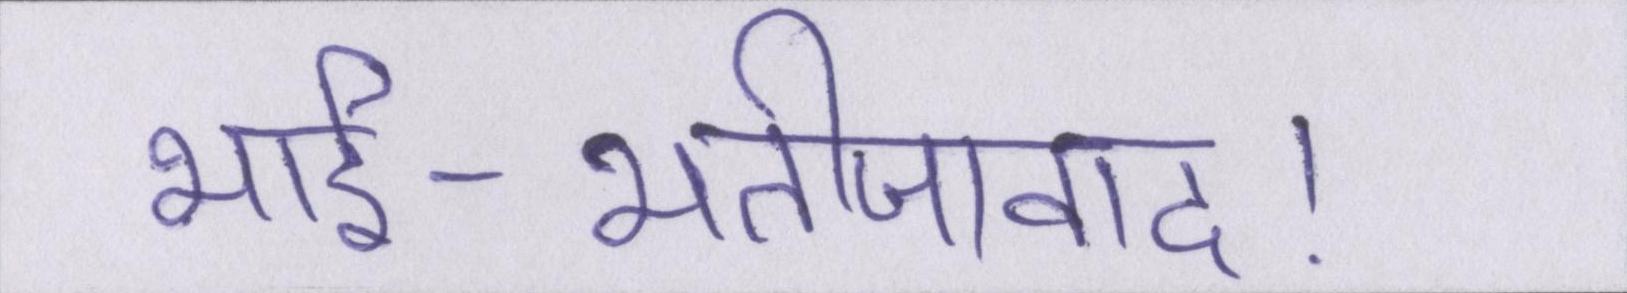 भाई-भतीजावाद!